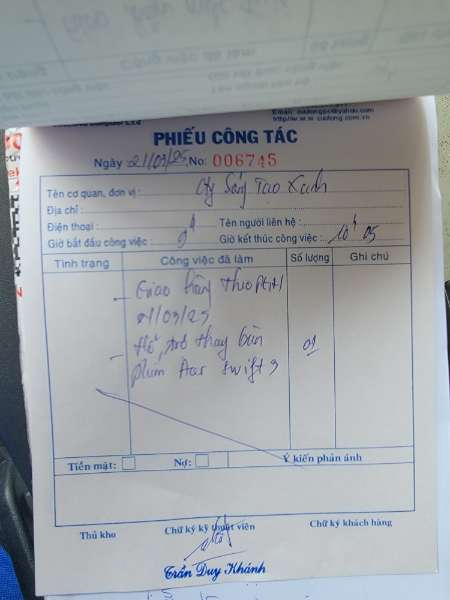 Email: cudongpc@yahoo.com
http://w.w.w cudong.com.vn
PHIẾU CÔNG TÁC
Ngày 21/03/25 No: 006745
Tên cơ quan, đơn vị : Cty Sáng Tạo Xanh
Địa chỉ :
Điện thoại : Tên người liên hệ :
Giờ bắt đầu công việc : 9h Giờ kết thúc công việc : 10h 05
Tình trạng Công việc đã làm Số lượng Ghi chú
- Giao hàng theo PGH
21/03/25
- Hỗ trợ thay bàn 01
phím Acer swift 3
Tiền mặt: Nợ: Ý kiến phản ánh
Thủ kho Chữ ký kỹ thuật viên Chữ ký khách hàng
Trần Duy Khánh